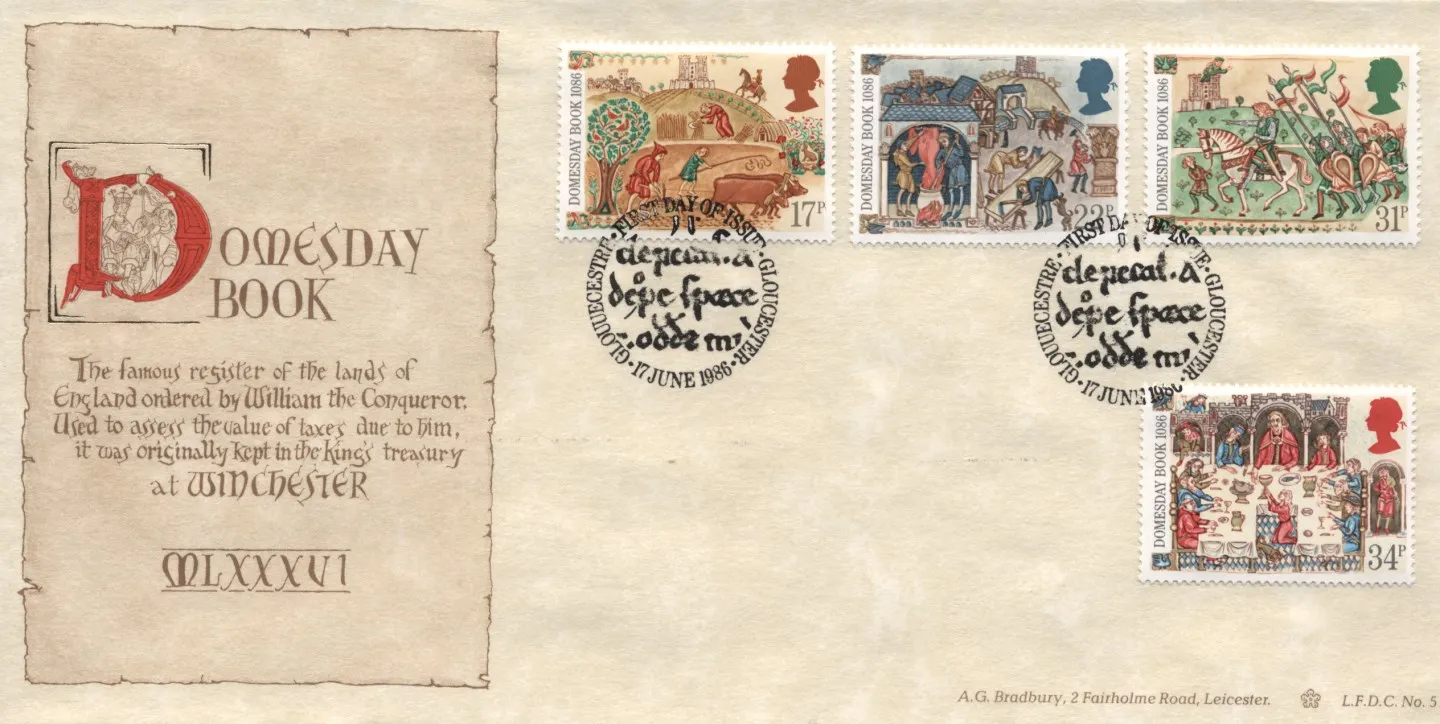 DOMESDAY
BOOK
The famous register of the lands of
England ordered by William the Conqueror.
Used to assess the value of taxes due to him,
it was originally kept in the King's treasury
at WINCHESTER
MLXXXVI
DOMESDAY BOOK 1086
17P
DOMESDAY BOOK 1086
22P
DOMESDAY BOOK 1086
31P
·FIRST DAY OF ISSUE·GLOUCESTER·
17 JUNE 1986·
GLOUUECESTRE
·FIRST DAY OF ISSUE·GLOUCESTER·
17 JUNE 1986
GLOUUECESTRE
DOMESDAY BOOK 1086
34P
A.G. Bradbury, 2 Fairholme Road, Leicester.
L.F.D.C. No. 5